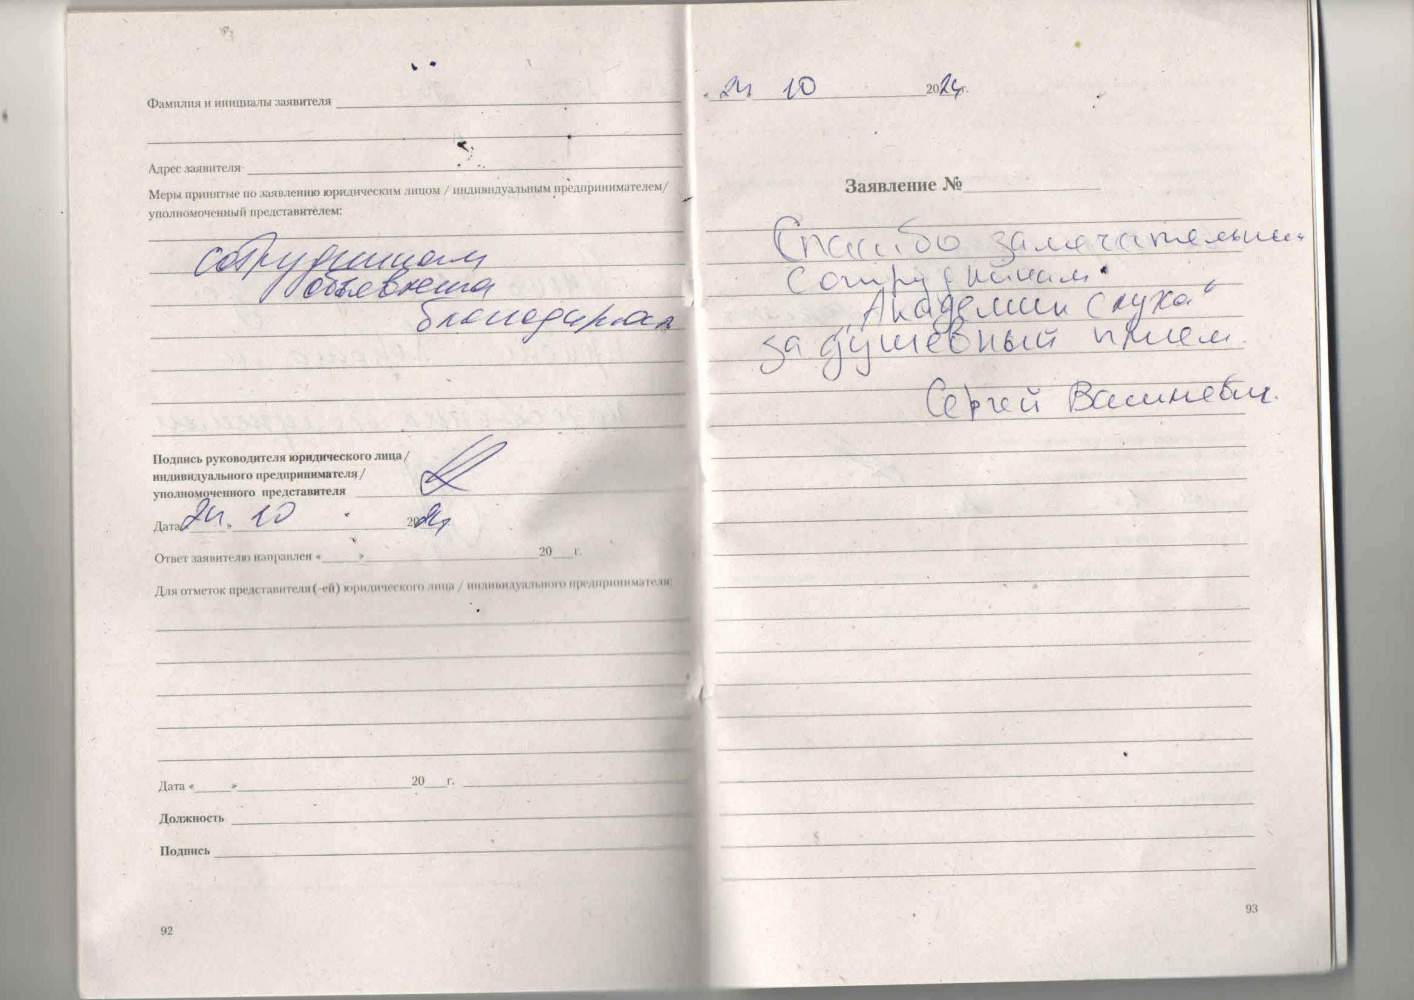 Фамилия и инициалы заявителя
Адрес заявителя
Меры принятые по заявлению юридическим лицом / индивидуальным предпринимателем/
уполномоченный представителем:
сотрудницам
объявлена
Подпись руководителя юридического лица /
индивидуального предпринимателя /
уполномоченного представителя
Дата 24 » 10 2024
Ответ заявителю направлен « » 20 г.
Для отметок представителя (-ей) юридического лица / индивидуального предпринимателя:
Дата « » 20 г.
Должность
Подпись
92
24 10 2024г.
Заявление №
Спасибо
сотрудникам
„Академии слуха"
за душевный прием.
Сергей
93